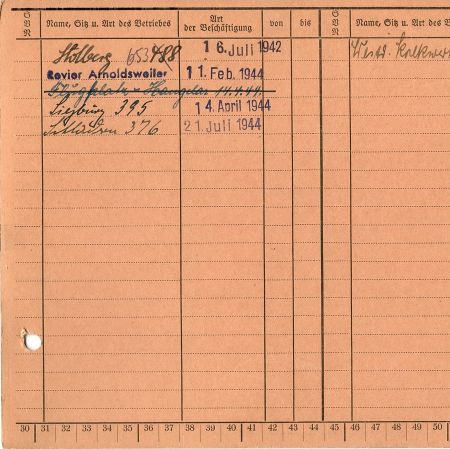 RBG Name, Sitz u. Art des Betriebes Art der Beschäftigung von bis RBG Name, Sitz u. Art des B
Stolberg 488 16. Juli 1942 Westd. Kalkwer
Revier Arnoldsweiler 11. Feb. 1944
Flugplatz - Hangelar 14.4.44.
Siegburg 395 14. April 1944
376 21. Juli 1944
30 31 32 33 34 35 36 37 38 39 40 41 42 43 44 45 46 47 48 49 50